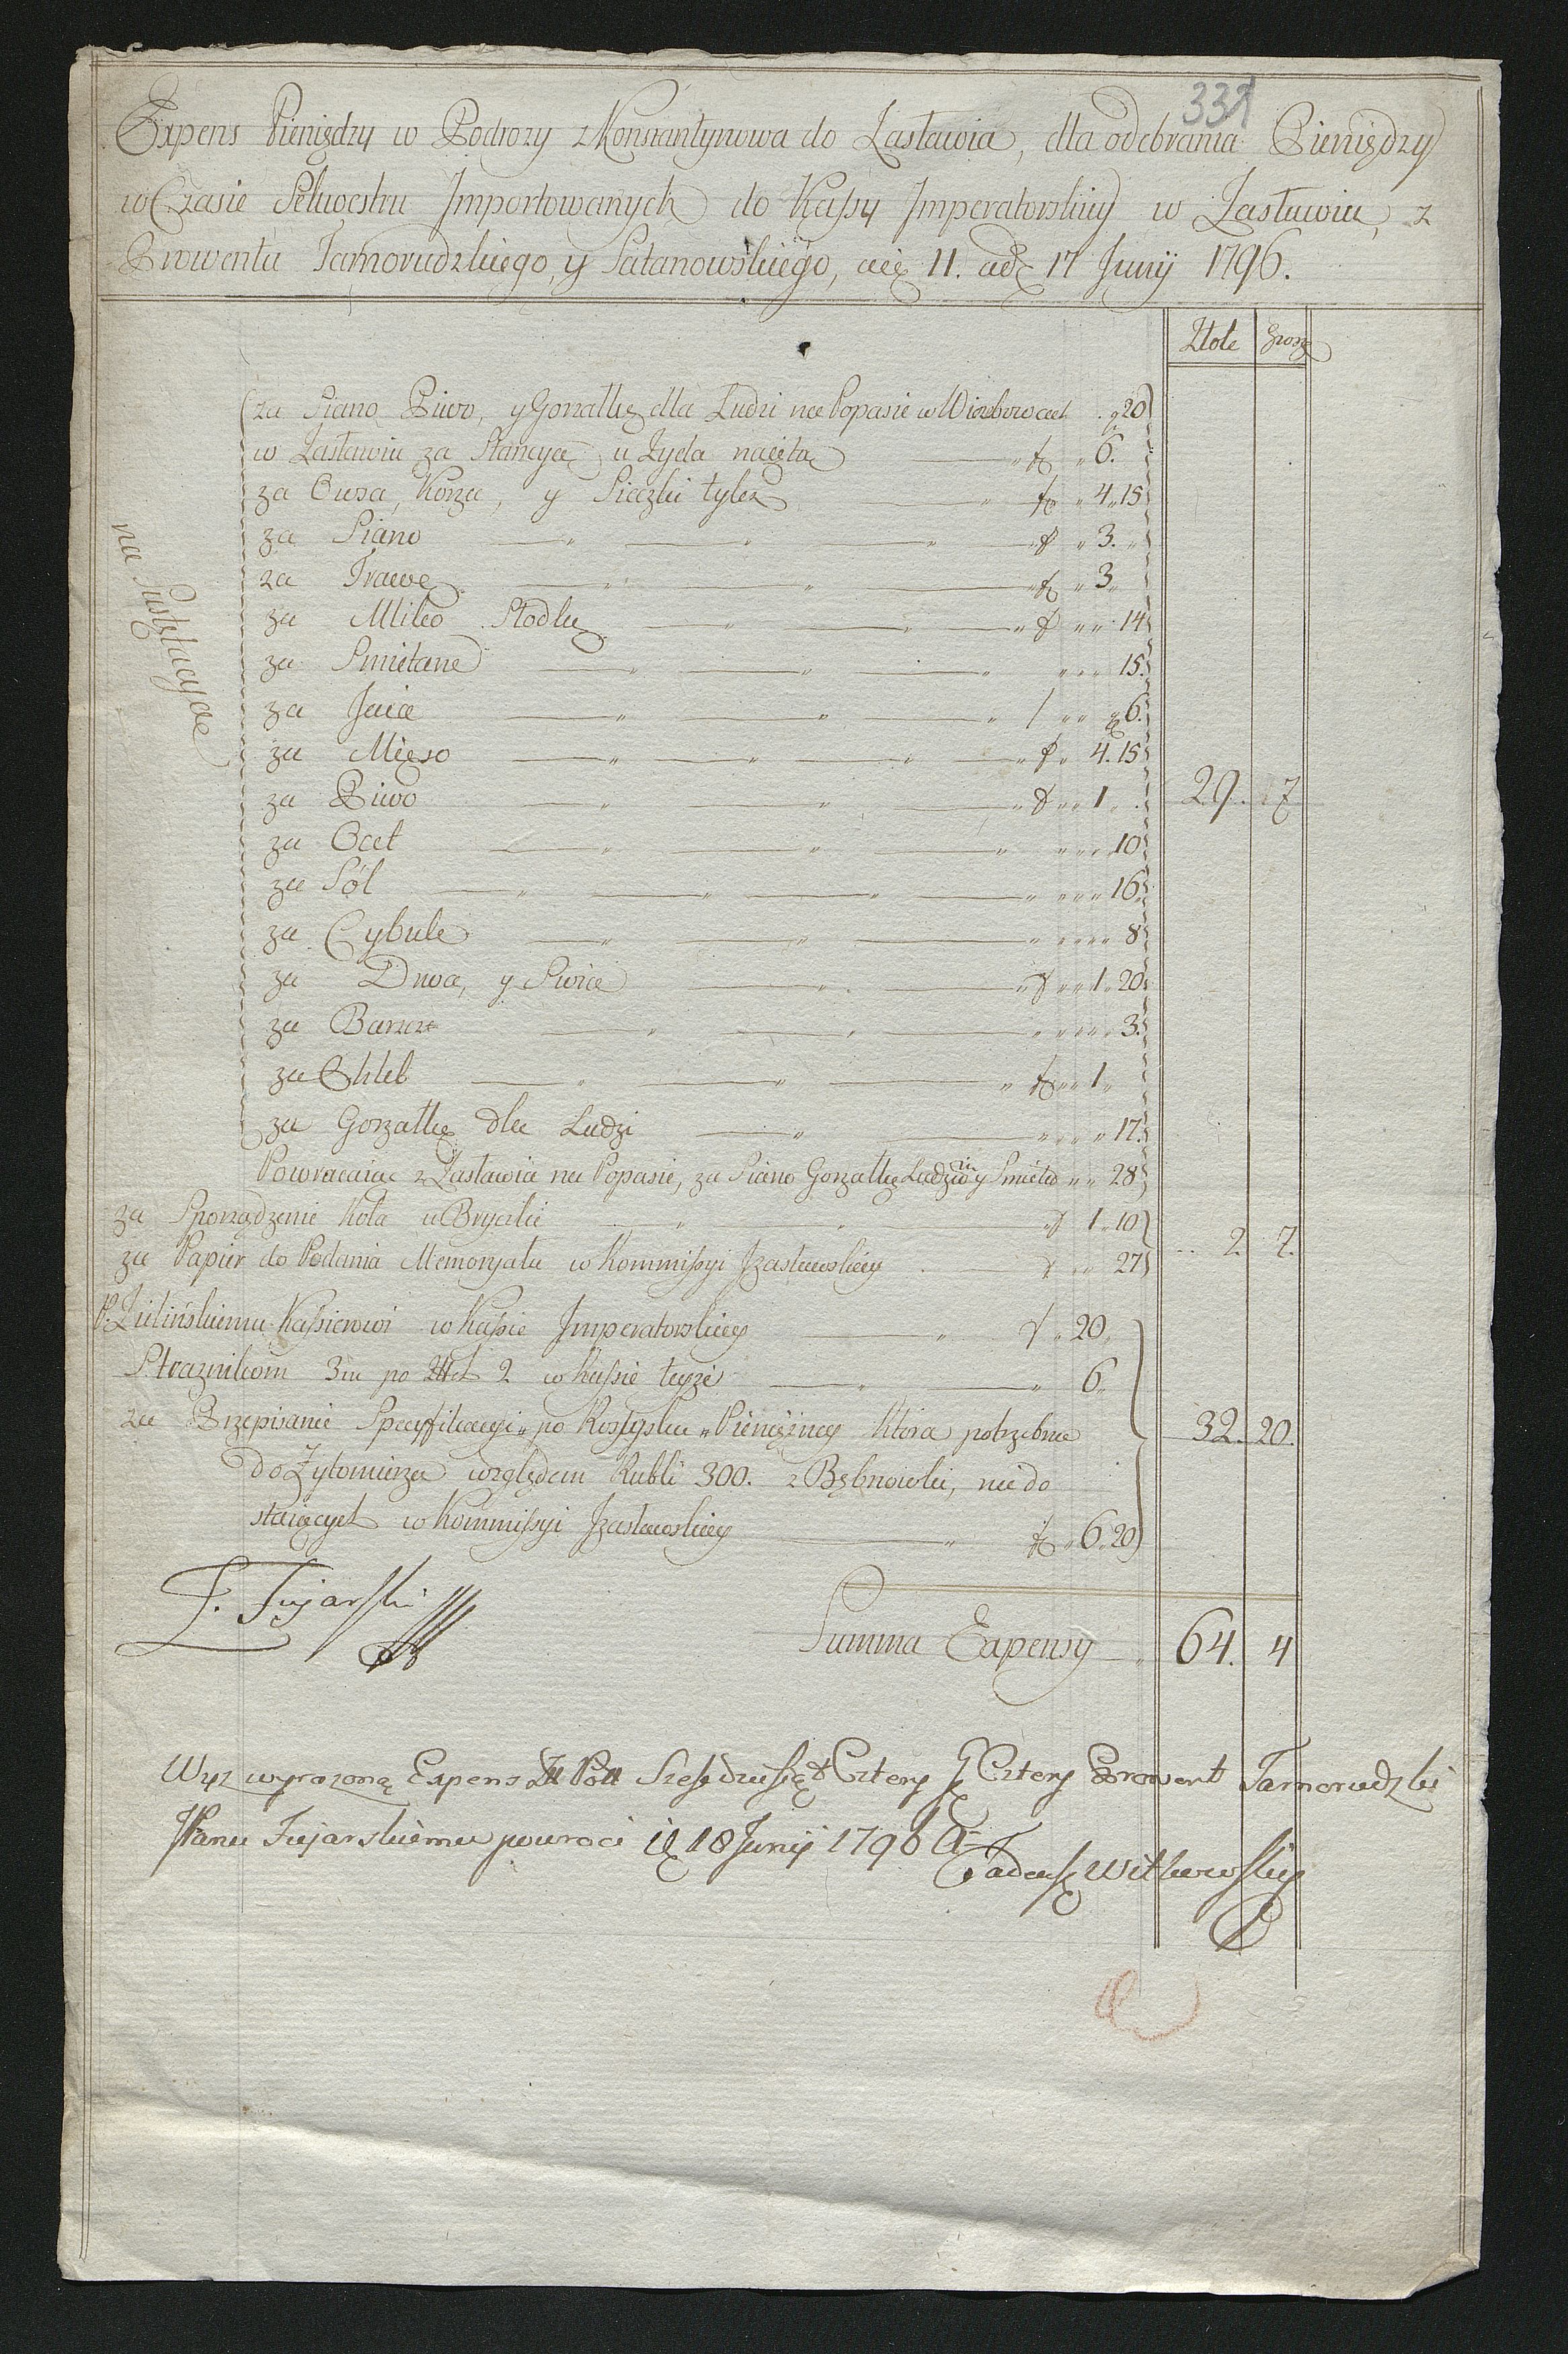 331
Expens Pieniędzy w Podrozy z Konstantynowa do Zasławia, dla odebrania Pieniędzy
w Czasie Sekwestru Importowanych do Kassy Imperatorskiey w Zasławiu, z
Prowentu Tarnorudzkiego, y Satanowskiego, die 11. ad 17 Junij 1796.
Złote Grosze
na Sustętacyą
za Siano Piwo, y Gorzałkę dla Ludzi na Popasie w Wierzbowcach . g 20
w Zasławiu za Stancyą u Zyda naiętą f 6.
za Owsa, Korzec, y Sieczki tyleż f 4. 15
za Siano f 3.
za Trawę f 3
za Mliko Słodkie f 14
za Smietanę 15.
za Jaia g 6.
za Mięso f 4. 15
za Piwo f 1
29. 7
za Ocet 10
za Sól 16
za Cybule 8
za Drwa, y Swice f 1. 20
za Barszcz 3.
za Chleb f 1
za Gorzałkę dla Ludzi 17.
Powracaiąc z Zasławia na Popasie, za Siano Gorzałkę Ludziom y Mliko 28
za Sporządzenie Koła u Bryczki f 1. 10
za Papier do Podania Memoryału w Kommissyi Izasławskiey f 27
2. 7.
P. Zielińskiemu Kassierowi w Kassie Imperatorskiey f 20
Straznikom 3m po Zł 2 w Kassie teyże 6
za Przepisanie Specyfikacyi po Rossysku Pieniężney ktora potrzebna
32. 20.
do Zytomirza względem Rubli 300. z Bębnowki, niedo
staiących w Kommissyi Izasławskiey f 6. 20
F. Fujarski
Summa Expensy 64. 4
Wyz wyrazoną Expens Zł Pol Szesdziesiąt Cztery g Cztery Prowent Tarnorudzki
JPanu Fujarskiemu powroci d 18 Junij 1796 A
Tadeusz Witkowski